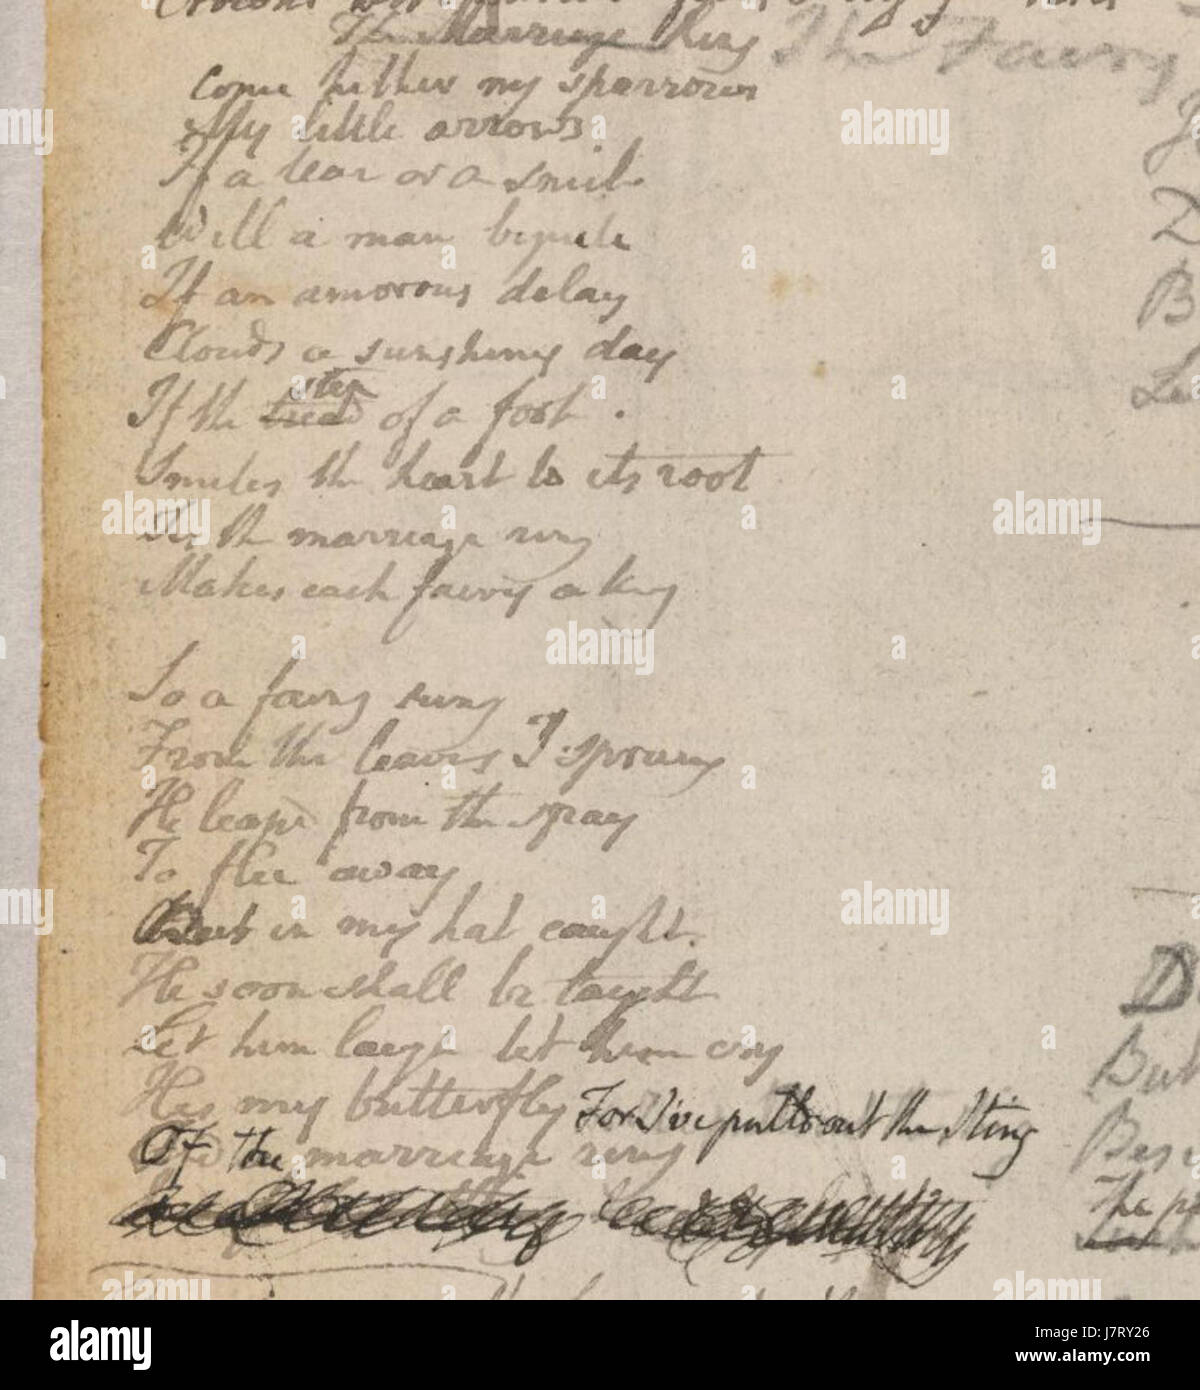 The Marriage Ring The Fairy
Come hither my sparrows
My little arrows
If a tear or a smile
Will a man beguile
If an amorous delay
Clouds a sunshiny day
If the tread step of a foot
Smites the heart to its root
Tis the marriage ring
Makes each fairy a king
So a fairy sung
From the leaves I sprung
He leapd from the spray
To flee away
But in my hat caught
He soon shall be taught
Let him laugh let him cry
Hes my butterfly
For I've pulld out the Sting
Of the marriage ring
D
B
D
But
The p
alamy
Image ID: J7RY26
www.alamy.com